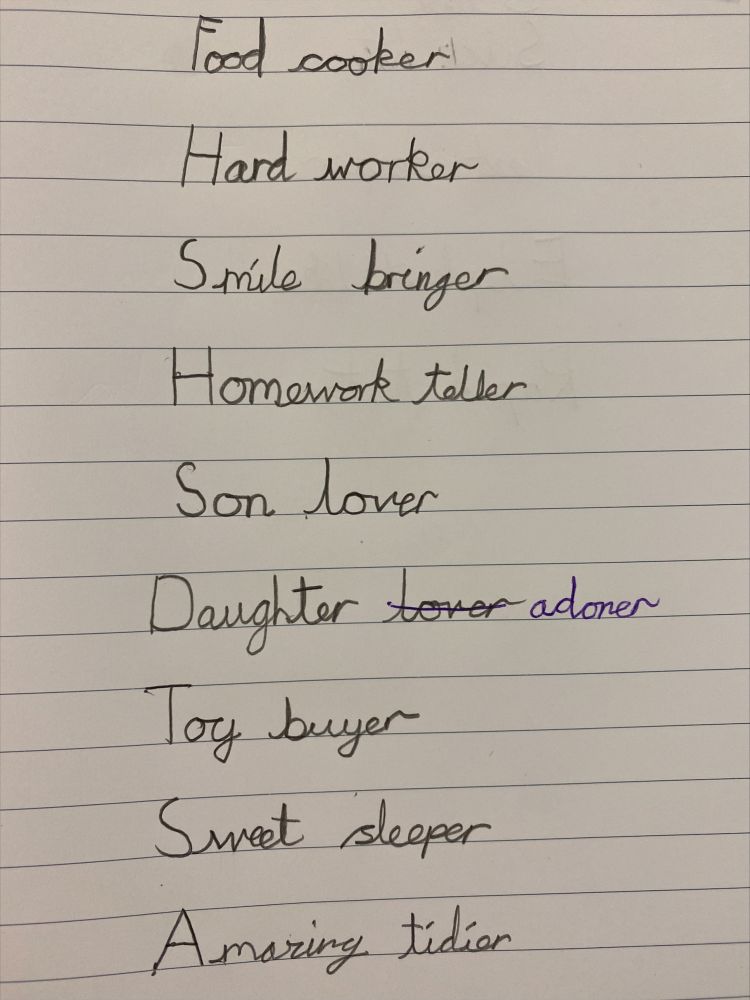 Food cooker
Hard worker
Smile bringer
Homework teller
Son lover
Daughter lover adorer
Toy buyer
Sweet sleeper
Amazing tidier